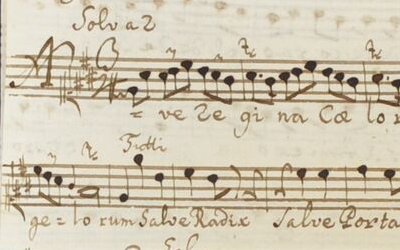 Solo a 2
A = ve Re gi na Cœ lo r
Tutti
ge = lo rum Salve Radix Salve Porta
Sol